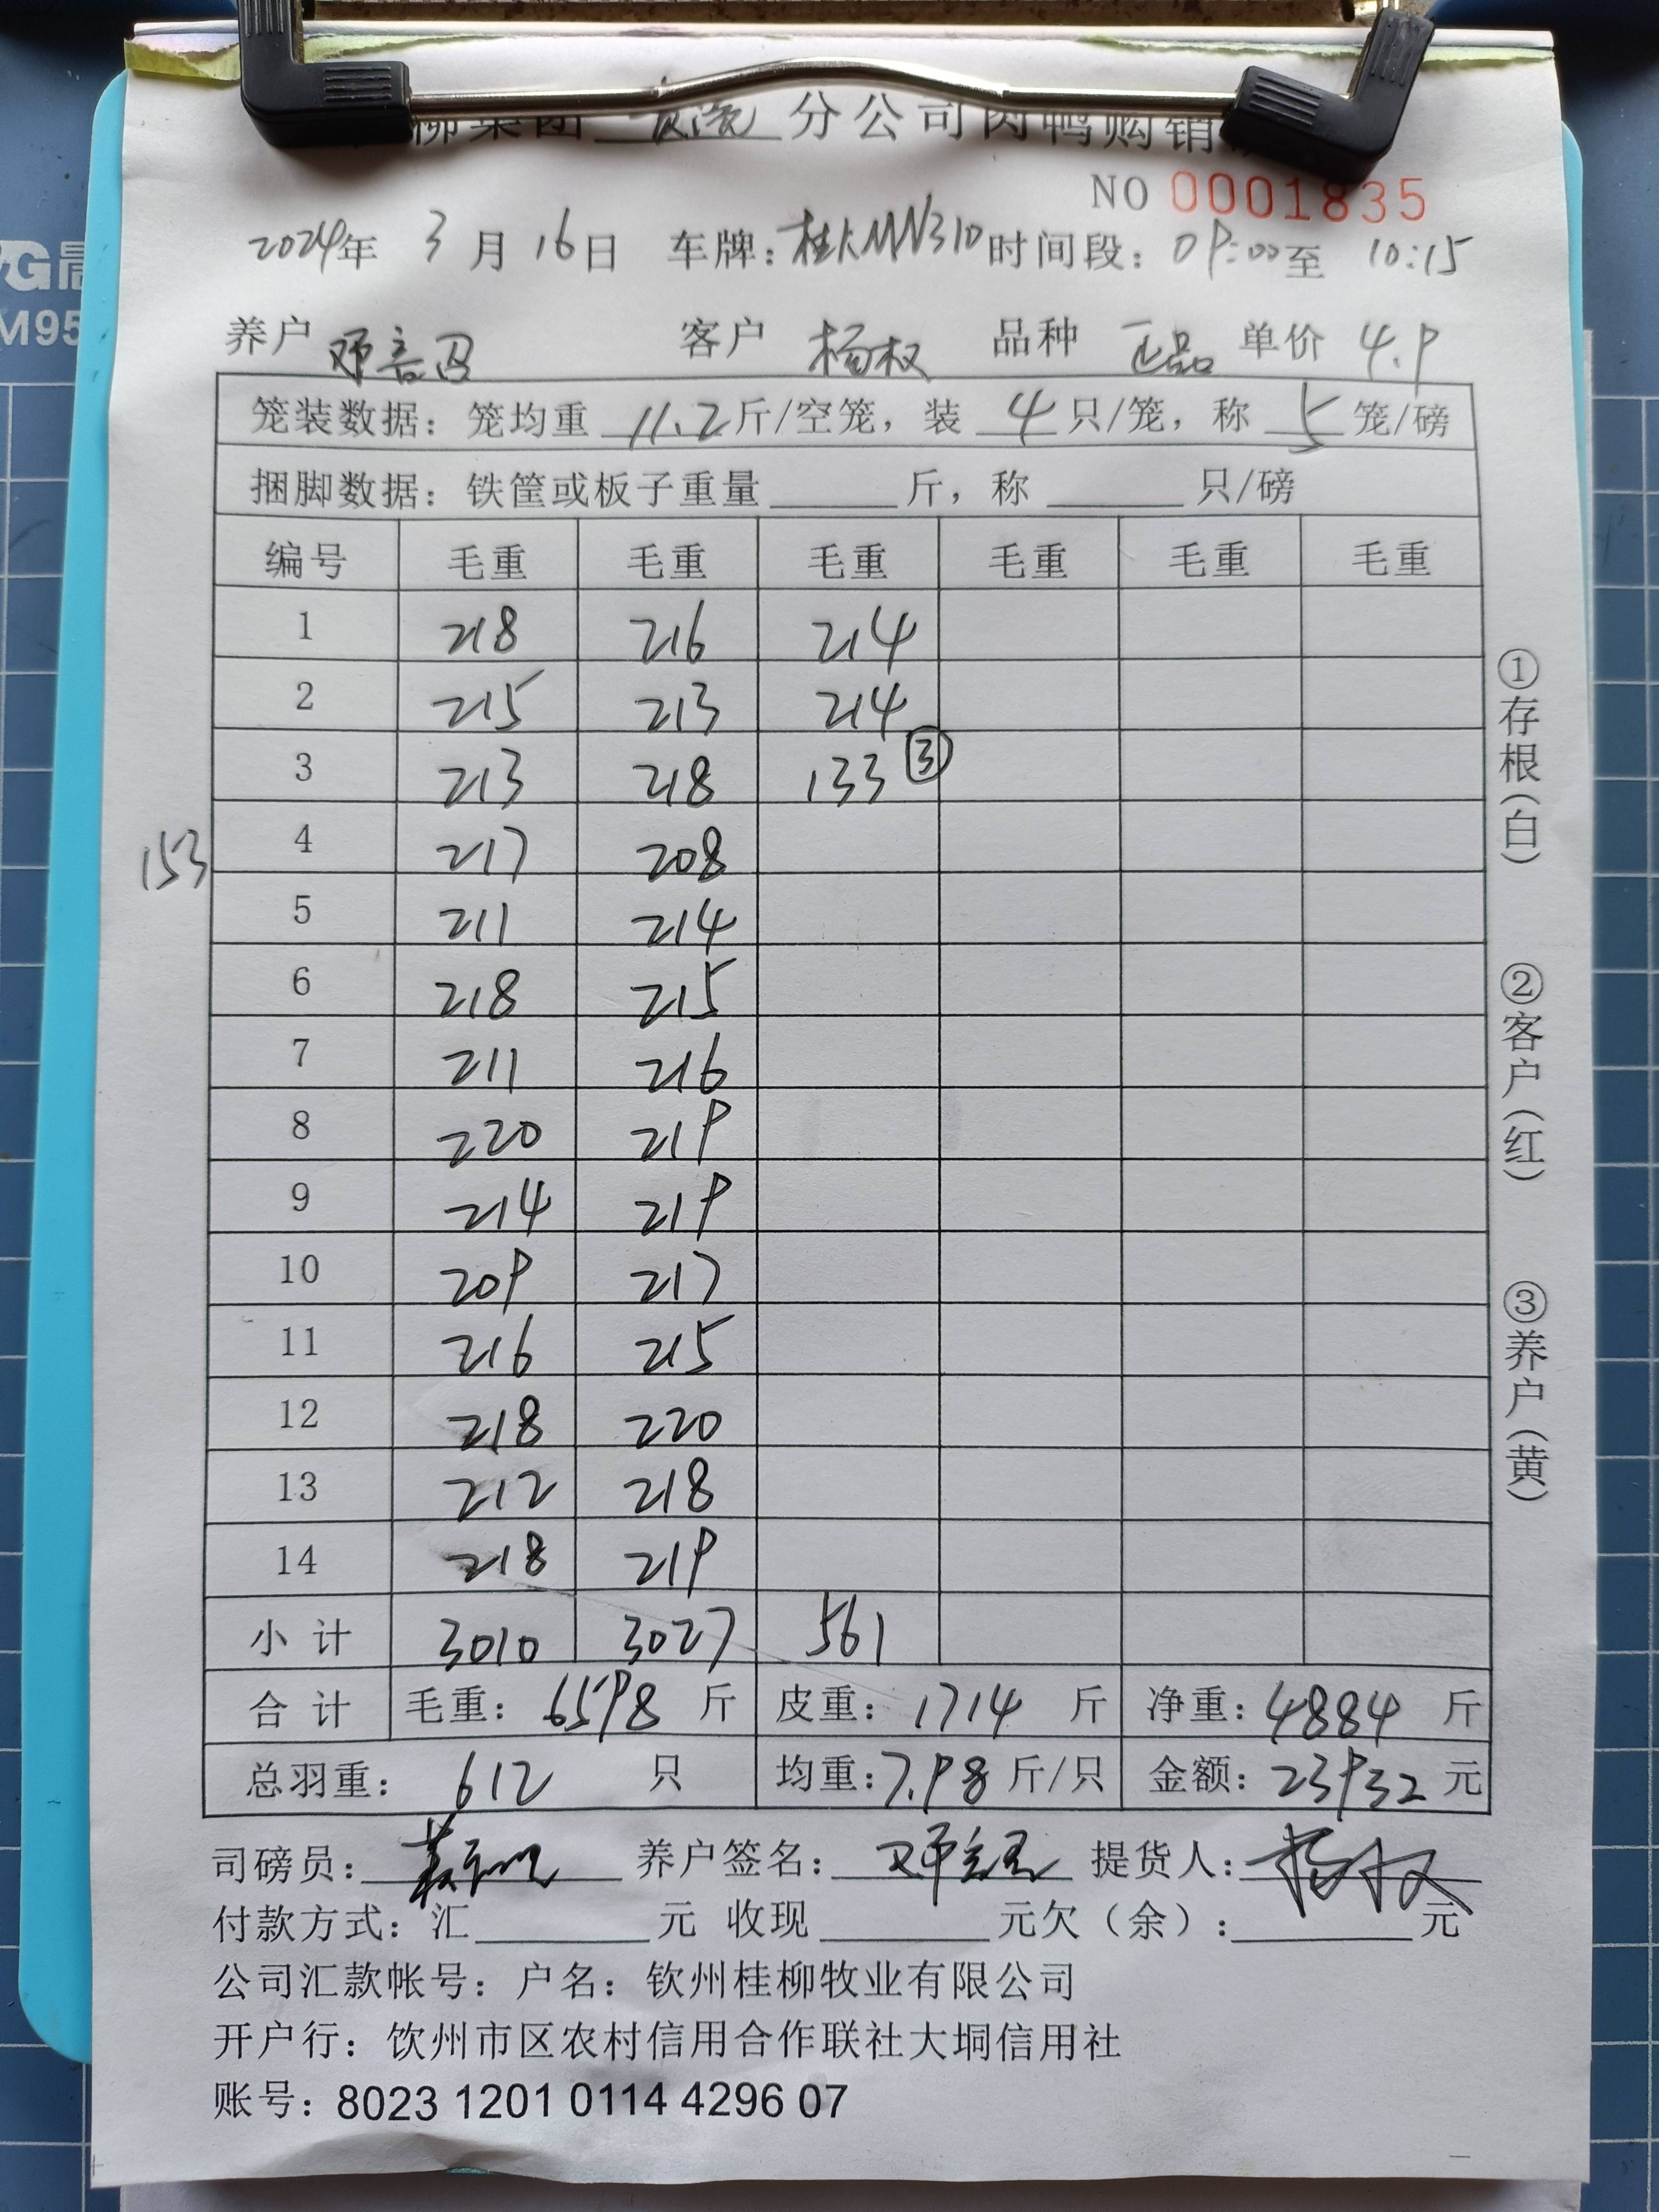 柳集团 分公司肉鸭购销
NO 0001835
2024年 3月16日 车牌:桂KMN310 时间段:09:00至 10:15
养户 邓 客户 杨权 品种 正品 单价 4.9
笼装数据:笼均重 11.2 斤/空笼,装 4 只/笼,称 5 笼/磅
捆脚数据:铁筐或板子重量______斤,称______只/磅
编号 毛重 毛重 毛重 毛重 毛重 毛重
1 218 216 214
2 215 213 214
3 213 218 133 ③
4 217 208
5 211 214
6 218 215
7 211 216
8 220 219
9 214 219
10 209 217
11 216 215
12 218 220
13 212 218
14 218 219
小计 3010 3027 561
合计 毛重:6598 斤 皮重:1714 斤 净重:4884 斤
总羽重:612 只 均重:7.98 斤/只 金额:23932 元
153
①存根(白) ②客户(红) ③养户(黄)
司磅员: 养户签名: 提货人:杨权
付款方式:汇______元 收现______元欠(余):______元
公司汇款帐号:户名:钦州桂柳牧业有限公司
开户行:饮州市区农村信用合作联社大垌信用社
账号:8023 1201 0114 4296 07
M95